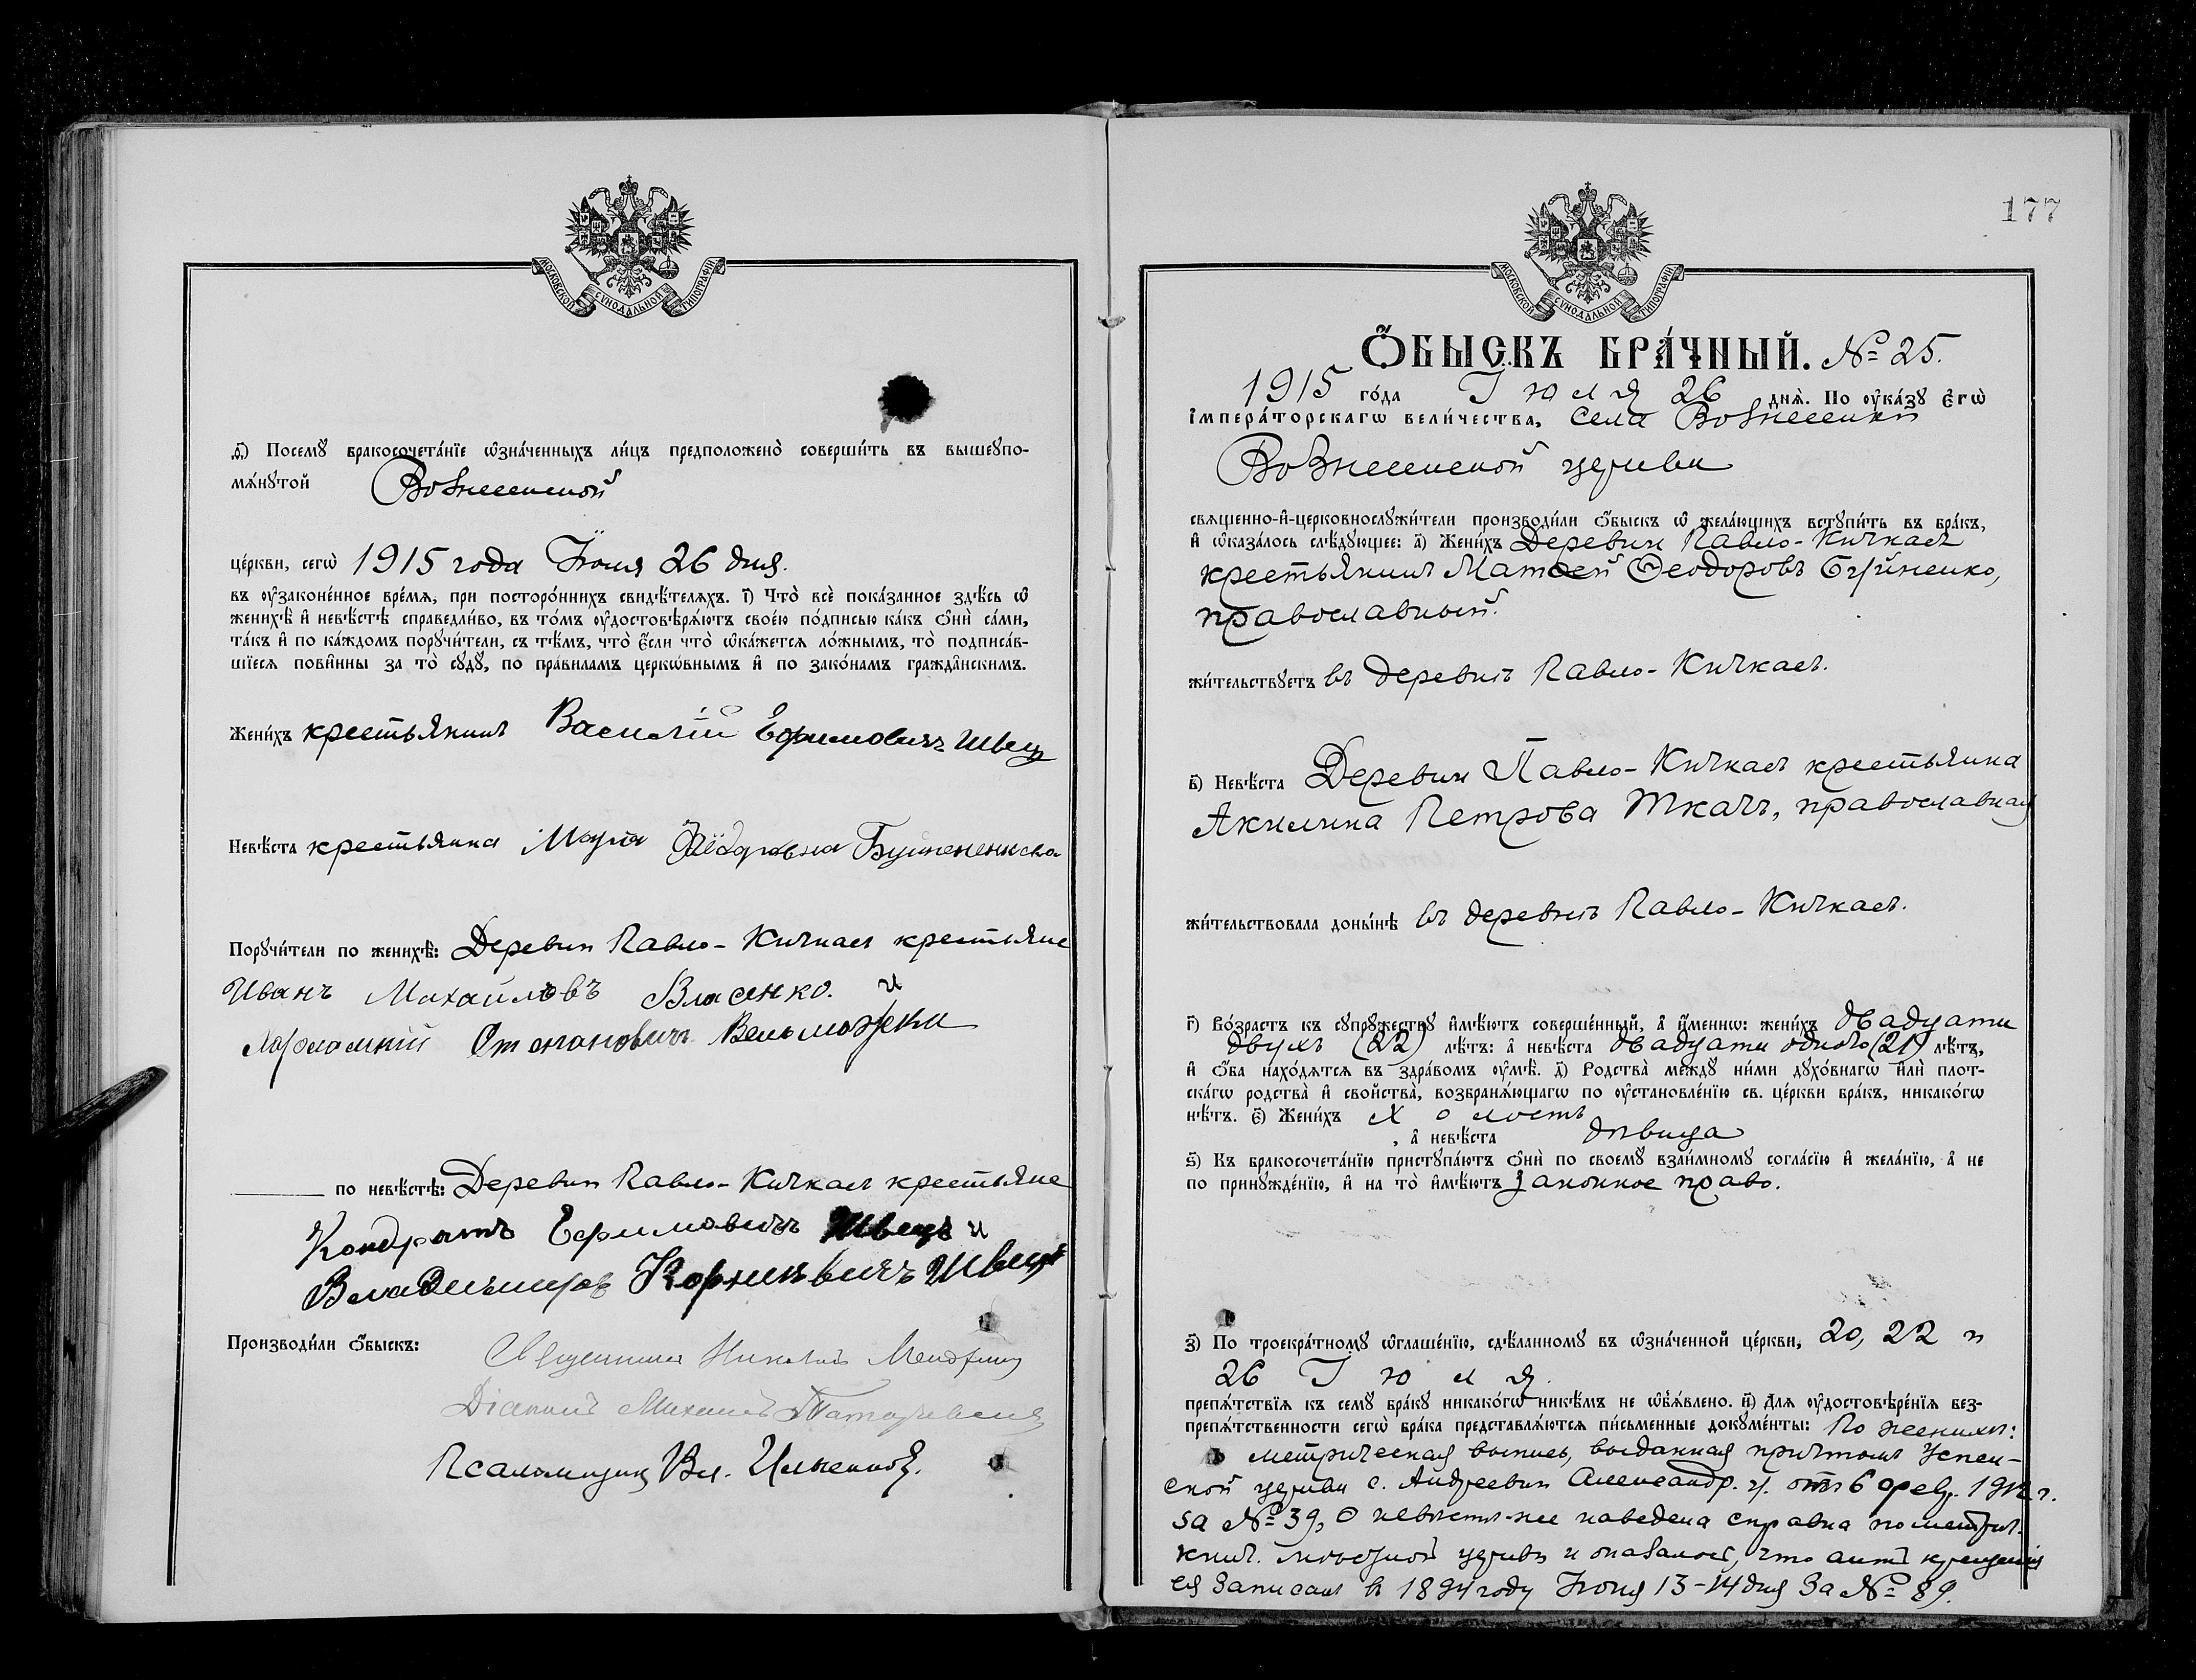 МОСКОВСКОЙ СѴНОДАЛЬНОЙ ТИПОГРАФІИ
д҃) Посемꙋ̀ бракосочета́нїе ѡ҆зна́ченныхъ ли́цъ предположено̀ соверши́ть въ вышеꙋпо-
мѧ́нꙋтой Вознесенской
це́ркви, сегѡ̀ 1915 года Іюля 26 дня.
въ ᲂу҆зако́ненное вре́мѧ, при посторо́ннихъ свидѣ́телѧхъ. і҃) Что̀ всѐ пока́занное здѣ́сь ѡ҆
женихѣ̀ и҆ невѣ́стѣ справедли́во, въ то́мъ ᲂу҆достовѣрѧ́ютъ свое́ю по́дписью ка́къ ѻ҆нѝ са́ми,
та́къ и҆ по ка́ждомъ порꙋчи́тели, съ тѣ́мъ, что̀ є҆́сли что̀ ѡ҆ка́жетсѧ ло́жнымъ, то̀ подписа́в-
шїесѧ пови́нны за то̀ сꙋдꙋ̀, по пра́виламъ церко́внымъ и҆ по зако́намъ гражда́нскимъ.
Жени́хъ крестьянинъ Василій Ефимовичъ Швец
Невѣ́ста крестьянка Марія Фёдоровна
Порꙋчи́тели по женихѣ̀: Деревни Павло-Кичкаса крестьяне
Иванъ Михайловъ Власенко. и
Харлампій Степановичъ Вельможка
по невѣ́стѣ: Деревни Павло-Кичкаса крестьяне
Кондратъ Ефимовичъ Швецъ и
Владимиръ Корнѣевичъ Швецъ
Производи́ли ѻ҆́быскъ: Священникъ Николай
Діаконъ Михаилъ
Псаломщикъ Вл. Ильенко
177
МОСКОВСКОЙ СѴНОДАЛЬНОЙ ТИПОГРАФІИ
Ѻ҆́БЫСКЪ БРА́ЧНЫЙ. № 25.
1915 го́да Іюля 26 днѧ̀. По ᲂу҆ка́зꙋ є҆гѡ̀
і҆мпера́торскагѡ вели́чества, села Вознесенки
Вознесенской церкви
свѧщенно-и҆-церковнослꙋжи́тели производи́ли ѻ҆́быскъ ѡ҆ жела́ющихъ встꙋпи́ть въ бра́къ,
и҆ ѡ҆каза́лось слѣ́дꙋющее: а҃) Жени́хъ Деревни Павло-Кичкаса
крестьянинъ Матѳей Ѳеодоровъ Буйненко,
православный.
жи́тельствꙋетъ въ деревнѣ Павло-Кичкасъ.
в҃) Невѣ́ста Деревни Павло-Кичкаса крестьянка
Акилина Петрова Ткачъ, православная
жи́тельствовала доны́нѣ въ деревнѣ Павло-Кичкасъ.
г҃) Во́зрастъ къ сꙋпрꙋ́жествꙋ и҆мѣ́ютъ соверше́нный, а҆ и҆́меннѡ: жени́хъ двадцати
двухъ (22) лѣ́тъ: а҆ невѣ́ста двадцати одного (21) лѣ́тъ,
и҆ ѻ҆́ба нахо́дѧтсѧ въ здра́вомъ ᲂу҆мѣ̀. д҃) Родства̀ междꙋ ни́ми дꙋхо́внагѡ и҆лѝ плот-
ска́гѡ родства̀ и҆ свойства̀, возбранѧ́ющагѡ по ᲂу҆становле́нїю св. це́ркви бра́къ, никако́гѡ
нѣ́тъ. є҃) Жени́хъ холостъ
, а҆ невѣ́ста дѣвица
ѕ҃) Къ бракосочета́нїю пристꙋпа́ютъ ѻ҆нѝ по своемꙋ̀ взаи́мномꙋ согла́сїю и҆ жела́нїю, а҆ не
по принꙋжде́нїю, и҆ на то̀ и҆мѣ́ютъ законное право.
з҃) По троекра́тномꙋ ѡ҆глаше́нїю, сдѣ́ланномꙋ въ ѡ҆зна́ченной це́ркви, 20, 22 и
26 Іюля
препѧ́тствїѧ къ семꙋ̀ бра́кꙋ никако́гѡ никѣ́мъ не ѡ҆б̾ѧ́влено. и҃) Длѧ ᲂу҆достовѣре́нїѧ без-
препѧ́тственности сегѡ̀ бра́ка представлѧ́ютсѧ пи́сьменные докꙋме́нты: По женихѣ:
метрическая выпись, выданная причтомъ Успен-
ской церкви с. Андреевки Александр. у. отъ 6 февр. 1912 г.
за № 39, О невѣстѣ-же наведена справка по метрич.
книг. мѣстной церкви и оказалось, что актъ крещенія
ея записанъ въ 1894 году Іюня 13-14 дня за № 89.